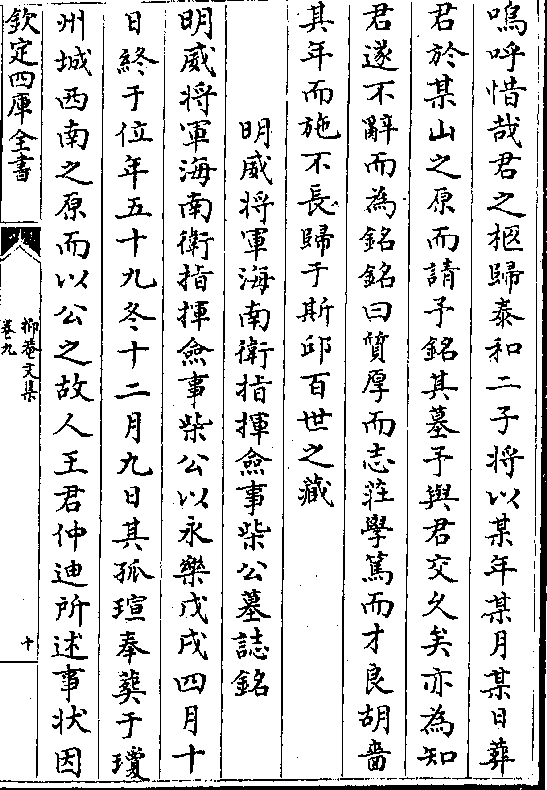 嗚呼惜哉君之柩歸泰和二子将以某年某月某日葬
君於某山之原而請予銘其墓予與君交久矣亦為知
君遂不辭而為銘銘曰質厚而志莊學篤而才良胡嗇
其年而施不長歸于斯邱百世之藏
明威将軍海南衛指揮僉事柴公墓誌銘
明威将軍海南衛指揮僉事柴公以永樂戊戌四月十
日終于位年五十九冬十二月九日其孤瑄奉葬于瓊
州城西南之原而以公之故人王君仲迪所述事状因
欽定四庫全書
抑菴文集
卷九
十